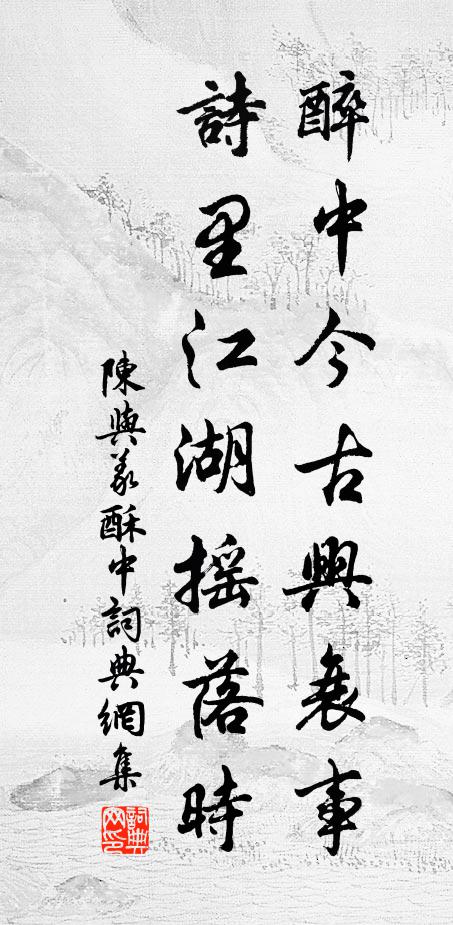 醉中今古興衰事
詩里江湖摇落時
陳與義酥中詞典網集
詞典網印